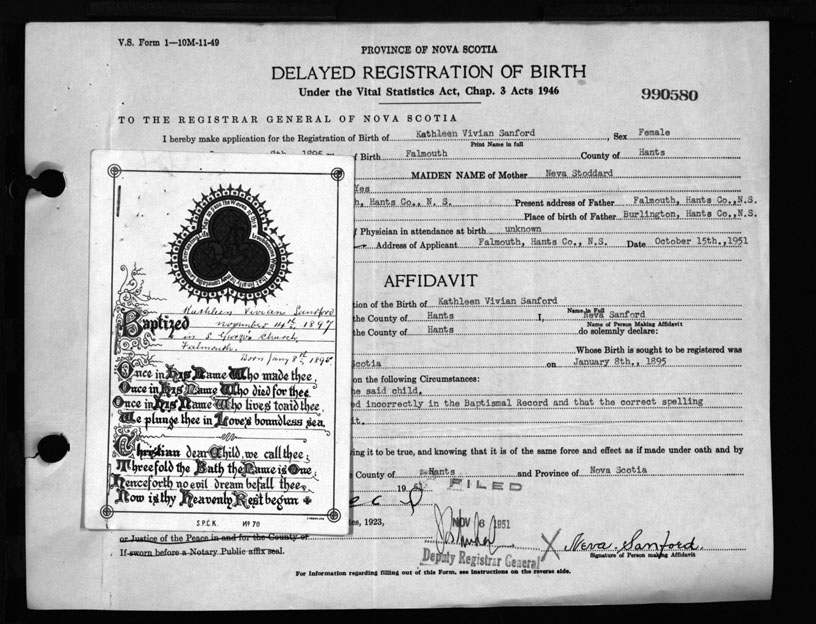 V.S. Form 1—10M-11-49
PROVINCE OF NOVA SCOTIA
DELAYED REGISTRATION OF BIRTH
Under the Vital Statistics Act, Chap. 3 Acts 1946
990580
TO THE REGISTRAR GENERAL OF NOVA SCOTIA
I hereby make application for the Registration of Birth of Kathleen Vivian Sanford, Sex Female
Print Name in full
8th, 1895 of Birth Falmouth County of Hants
MAIDEN NAME of Mother Neva Stoddard
Yes
h, Hants Co., N. S. Present address of Father Falmouth, Hants Co.,N.S.
Place of birth of Father Burlington, Hants Co.,N.S.
f Physician in attendance at birth unknown
Address of Applicant Falmouth, Hants Co., N.S. Date October 15th.,1951
AFFIDAVIT
tion of the Birth of Kathleen Vivian Sanford
the County of Hants I, Neva Sanford
Name in Full
Name of Person Making Affidavit
the County of Hants do solemnly declare:
Whose Birth is sought to be registered was
Scotia on January 8th., 1895
on the following Circumstances:
he said child.
ed incorrectly in the Baptismal Record and that the correct spelling
it.
ing it to be true, and knowing that it is of the same force and effect as if made under oath and by
e County of Hants and Province of Nova Scotia
19
FILED
tes, 1923,
NOV 6 1951
Deputy Registrar General
X Neva Sanford.
Signature of Person making Affidavit
or Justice of the Peace in and for the County of
If sworn before a Notary Public affix seal.
For Information regarding filling out of this Form, see instructions on the reverse side.
Kathleen Vivian Sanford
Baptized november 14th, 1897
in S. Church,
Falmouth.
Born Jany 8th, 1895
Once in His Name Who made thee,
Once in His Name Who died for thee,
Once in His Name Who lives to aid thee,
We plunge thee in Love's boundless sea.
Christian dear Child, we call thee;
Threefold the Bath the Name is One;
Henceforth no evil dream befall thee,
Now is thy Heavenly Rest begun
S.P.C.K. Nº 70